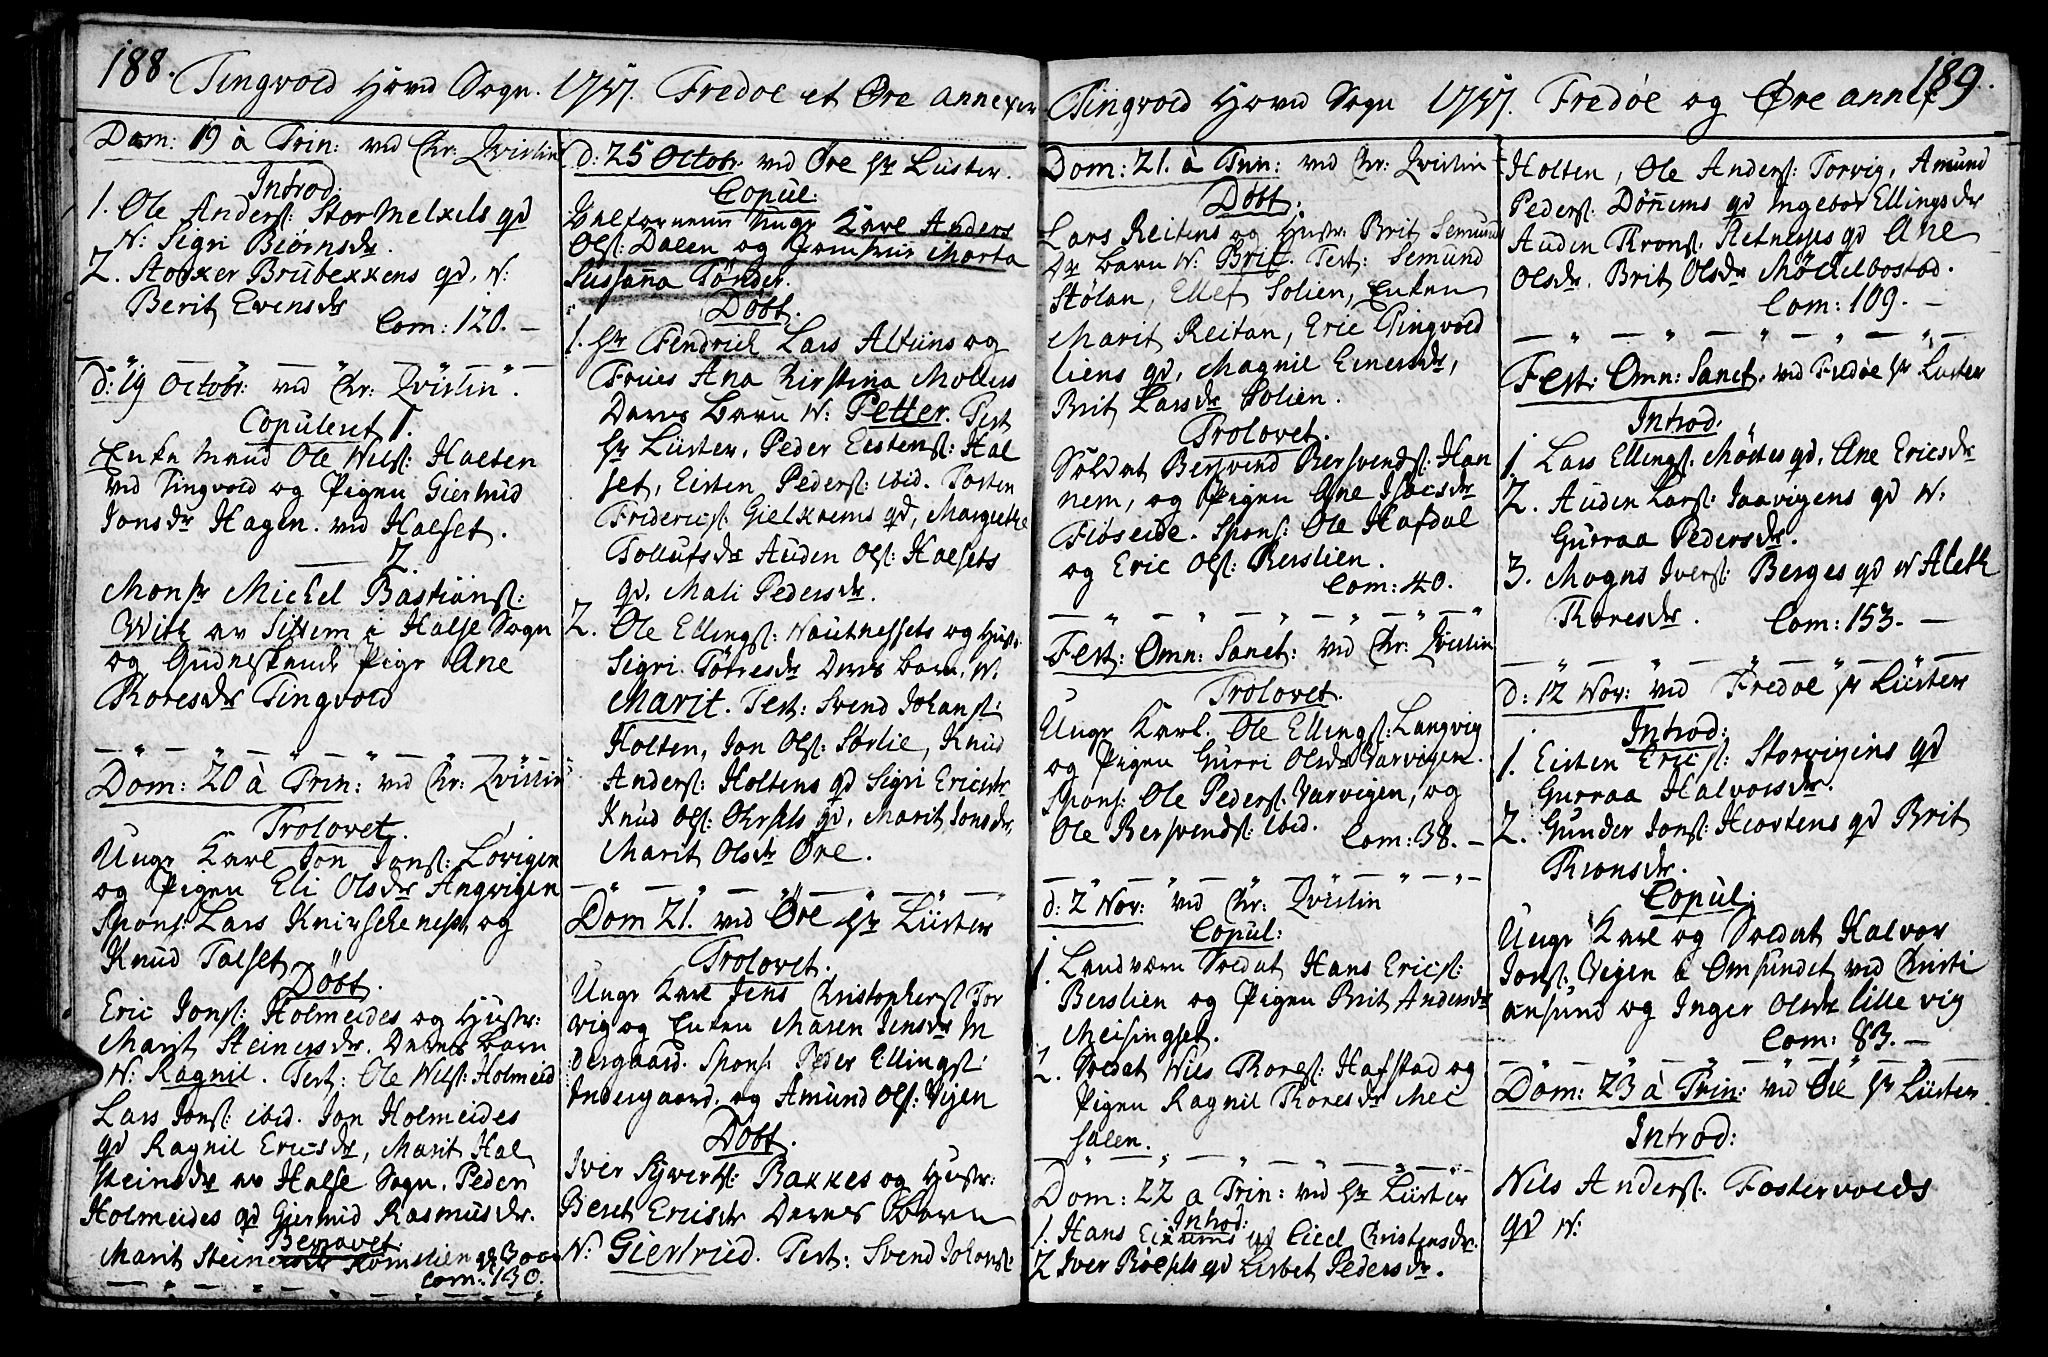 188. Tingvold Hovd Sogn. 1757. Fredøe et Øre annexer
Dom: 19 à Trin: ved Chr: Qvislin
Introd:
1. Ole Anders: Stormelkels qd
N: Sigri Biørnsdr
2. Stocker Brubekkens qd, N:
Berit Evensdr
Com: 120. —
d: 19 Octobr: ved Chr: Qvislin.
Copuleret 1.
Enke Mand Ole Nils: Halten
ved Tingvold og Pigen Giertrud
Jonsdr Hagen. ved Halset.
2.
Monsr Michel Bastians:
Witt av Sittem i Halse Sogn
og Gudneskende Pige Ane
Thoresdr Tingvold
Dom: 20 à Trin: ved Chr: Qvislin
Trolovet.
Ungr Karl Jon Jons: Lovigen
og Pigen Eli Olsdr Angvigen
Spons: Lars Knirschenest og
Knud Talset
Døbt.
Eric Jons: Holmeides og Hustr:
Marit Steinersdr. Deres barn
N: Ragnil. Test: Ole Nils: Holmeid
Lars Jons: ibid. Jon Holmeides
qd Ragnil Ericsdr, Marit Hal
steinsdr av Halse Sogn. Peder
Holmeides qd Giertrud Rasmusdr.
Begravet.
Marit Steinersdr Holmeiden
Com: 130.
d: 25 Octobr. ved Øre Hr Lüster.
Copul:
Velfornemme Ungr Karl Anders
Ols: Dalen og Jomfrue Marta
Sussanna Tønder.
Døbt.
1. Hr Fendrich Lars Altuns og
Frues Ana Kirstina Mollers
Deres Barn N: Petter. Test
Hr Lüster, Peder Eistens: Hal
set, Eisten Peders: ibid. Torsten
Frideric: Gielkrems qd, Margrethe
Tollufsdr Auden Ols: Halsets
qd, Mali Pedersdr.
2. Ole Ellings: Nautnessets og Hust:
Sigri Tørresdr Deres barn, N.
Marit. Test: Svend Johans:
Holten, Jon Ols: Sørlie, Knud
Anders: Holtens qd Sigri Ericsdr
Knud Ols: qd, Marit Jonsdr,
Marit Olsdr Øre.
Dom 21. ved Øre Hr Lüster
Trolovet.
Ungr Karl Jens Christophers: Tor
vig og Enken Maren Jensdr In
dergaard. Spons: Peder Ellings:
Indergaard. og Amund Ols: Vejen
Døbt.
Iver Syverts: Bakkes og Hustr:
Beret Ericsdr Deres Barn
N: Giertrud. Test: Svend Johans:
Tingvold Hovd Sogn 1757. Fredøe og Øre annex
189.
Dom: 21. à Trin: ved Chr: Qvislin
Døbt.
Lars Reitens og Hustr: Brit Semunds
Dr barn N: Brit. Test: Semund
Stølan, Ellef Solien, Enken
Marit Reitan, Eric Tingvold
liens qd, Magnil Einersdr,
Brit Larsdr Solien.
Trolovet.
Soldat Bersvend Bersvends: Han
nem, og Pigen Ane Isacsdr
Fiøseide. Spons: Ole Hafdal
og Eric Ols: Berslien.
Com: 40.
Fest: Omn: Sanct: ved Chr: Qvislin
Trolovet.
Ungr Karl. Ole Ellings: Langvig
og Pigen Gurri Olsdr Varvigen.
Spons: Ole Peders: Varvigen, og
Ole Bersvends: ibid. Com: 38. —
d: 2 Nov: ved Chr: Qvislin
Copul:
1. Landværn Soldat Hans Erics:
Berslien og Pigen Brit Andersdr
Meisingset.
2. Soldat Nils Thores: Hafstad og
Pigen Ragnil Thoresdr Mei
salen.
Dom: 22 a Trin: ved Hr Lüster
Introd:
1. Hans Eikrems qd Cicel Christensdr.
2 Iver qd Lisbet Pedersdr.
Holten, Ole Anders: Torvig, Amund
Peders: Dønnems qd Ingebor Ellingsdr
Auden Trons: Retnesses qd Ane
Olsdr. Brit Olsdr Möckelbostad.
Com: 109. —
Fest: Omn: Sanct. ved Fredøe Hr Luster
Introd:
1. Lars Ellings: Møstes qd, Ane Ericsdr
2. Auden Lars: Jaavigens qd N:
Gurraa Pedersdr.
3. Mogns Ivers: Berges qd N Aleth
Thoresdr. Com: 153. —
d: 12 Nov: ved Fredøe Hr Lüster
Introd:
1. Eisten Eric: Storvigens qd
Gurraa Halvorsdr.
2. Gunder Jons: Hiortens qd Brit
Tronsdr.
Copul:
Ungr Karl og Soldat Halvor
Jons: Vejen a Omsundet ved Christi
ansund og Inger Olsdr lille vig
Com: 83. —
Dom: 23 à Trin: ved Øre Hr Lüster.
Introd:
Nils Anders: Fostervolds
qd N: